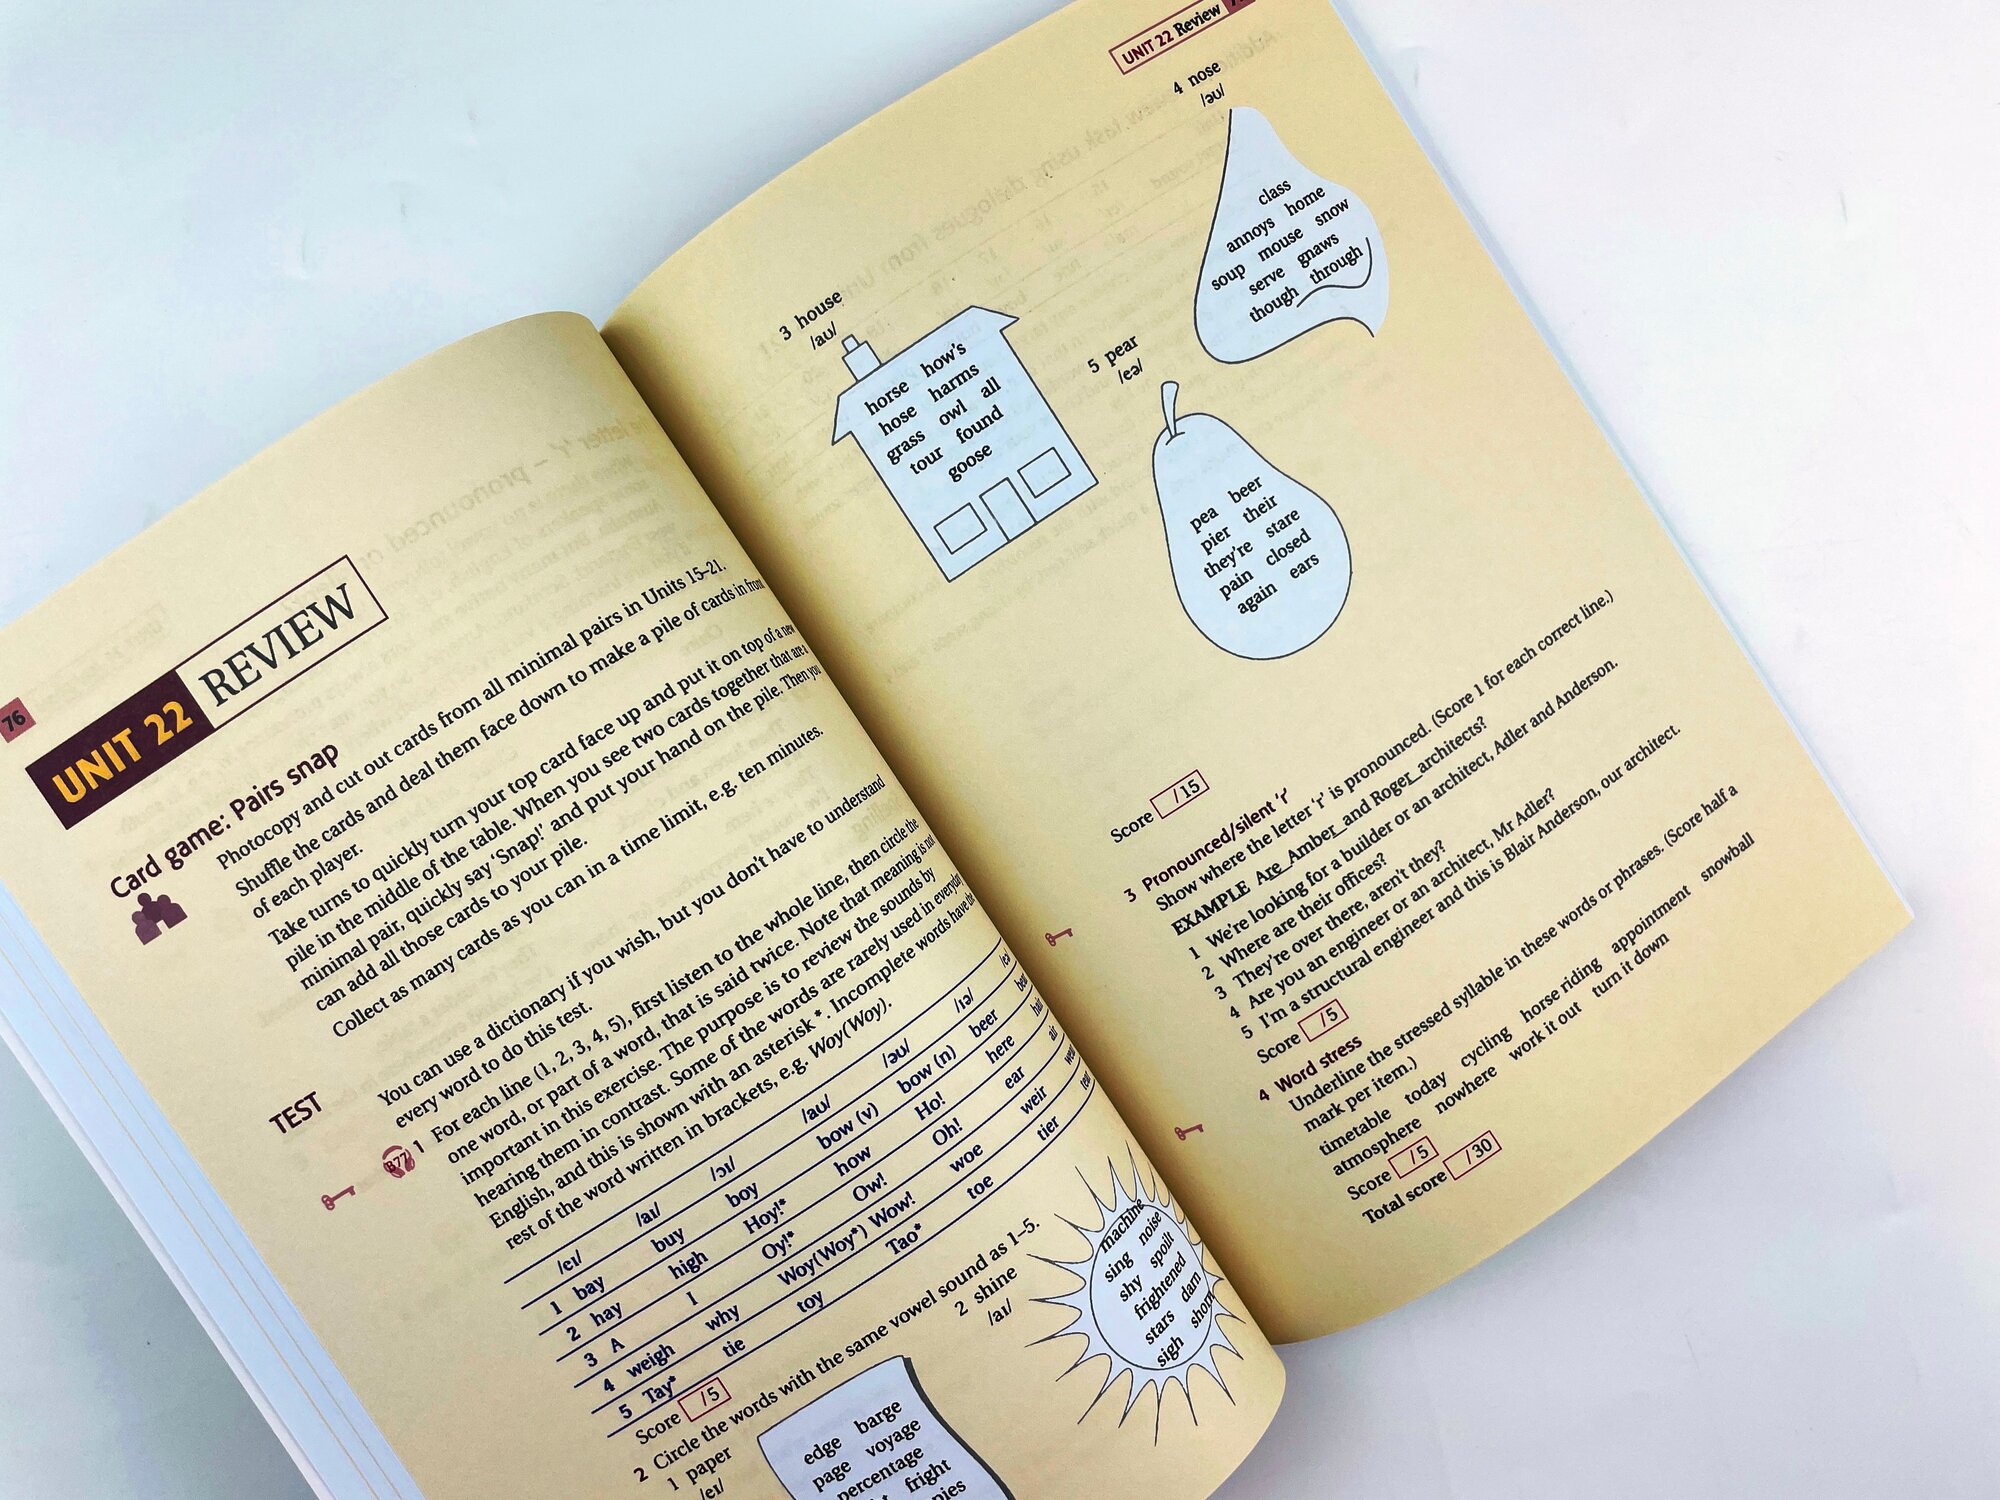 76
UNIT 22 REVIEW
Card game: Pairs snap
Photocopy and cut out cards from all minimal pairs in Units 15–21.
Shuffle the cards and deal them face down to make a pile of cards in front
of each player.
Take turns to quickly turn your top card face up and put it on top of a new
pile in the middle of the table. When you see two cards together that are a
minimal pair, quickly say 'Snap!' and put your hand on the pile. Then you
can add all those cards to your pile.
Collect as many cards as you can in a time limit, e.g. ten minutes.
TEST
You can use a dictionary if you wish, but you don't have to understand
every word to do this test.
B77 1 For each line (1, 2, 3, 4, 5), first listen to the whole line, then circle the
one word, or part of a word, that is said twice. Note that meaning is not
important in this exercise. The purpose is to review the sounds by
hearing them in contrast. Some of the words are rarely used in everyday
English, and this is shown with an asterisk *. Incomplete words have the
rest of the word written in brackets, e.g. Woy(Woy).
/eɪ/ /aɪ/ /ɔɪ/ /aʊ/ /əʊ/ /ɪə/
1 bay buy boy bow (v) bow (n) beer
2 hay high Hoy!* how Ho! here
3 A I Oy!* Ow! Oh! ear
4 weigh why Woy(Woy*) Wow! woe weir
5 Tay* tie toy Tao* toe tier
Score /5
2 Circle the words with the same vowel sound as 1–5.
1 paper
/eɪ/
edge barge
page voyage
percentage
fright
2 shine
/aɪ/
machine
sing noise
shy spoilt
frightened
stars darn
sigh shorn
UNIT 22 Review
3 house
/aʊ/
horse how's
hose harms
grass owl all
tour found
goose
4 nose
/əʊ/
class
annoys home
soup mouse snow
serve gnaws
though through
5 pear
/eə/
pea beer
pier their
they're stare
pain closed
again ears
Score /15
3 Pronounced/silent 'r'
Show where the letter 'r' is pronounced. (Score 1 for each correct line.)
EXAMPLE Are_Amber_and Roger_architects?
1 We're looking for a builder or an architect, Adler and Anderson.
2 Where are their offices?
3 They're over there, aren't they?
4 Are you an engineer or an architect, Mr Adler?
5 I'm a structural engineer and this is Blair Anderson, our architect.
Score /5
4 Word stress
Underline the stressed syllable in these words or phrases. (Score half a
mark per item.)
timetable today cycling horse riding appointment snowball
atmosphere nowhere work it out turn it down
Score /5
Total score /30